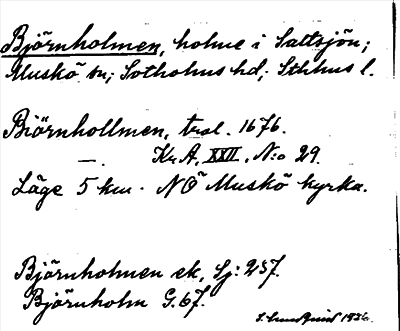 Björnholmen, holme i Saltsjön;
Muskö sn; Sotholms hd; Sthlms l.
Biörnhollmen, tral. 1676.
— . Kr.A. XXII, N:o 29.
Läge 5 km. NÖ Muskö kyrka.
Björnholmen ek, Sj: 257.
Björnholm G. 67.
S. Lundqvist 1936.